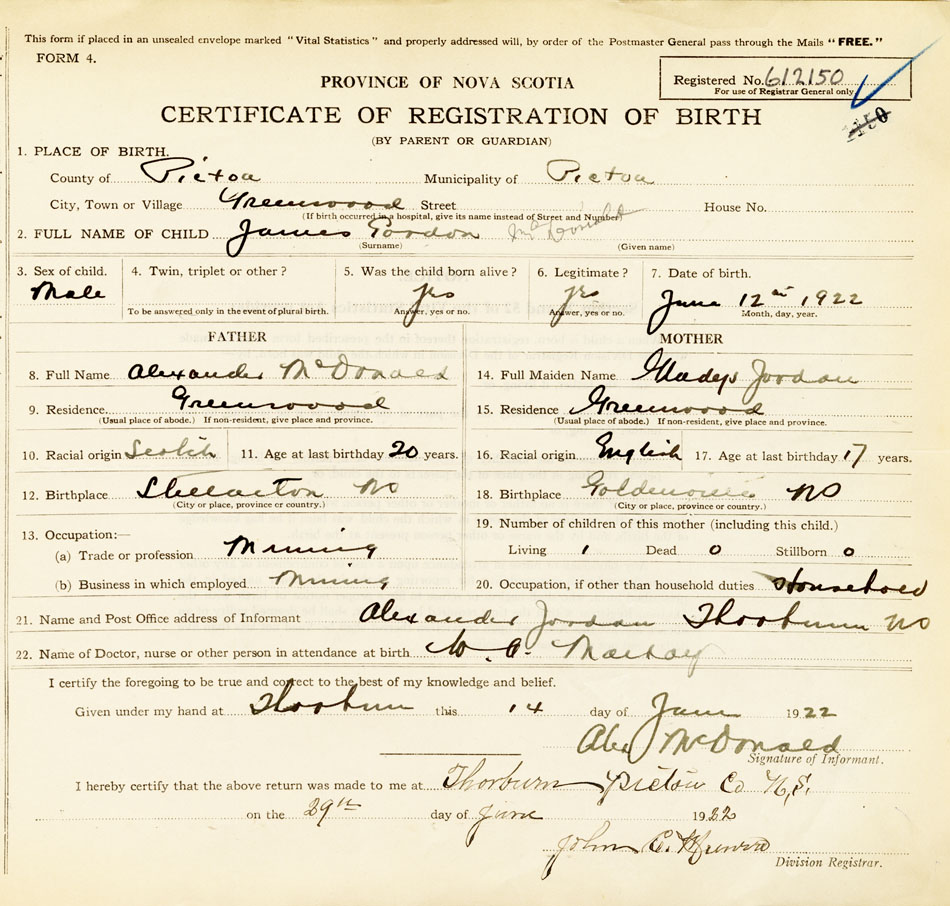 This form if placed in an unsealed envelope marked "Vital Statistics" and properly addressed will, by order of the Postmaster General pass through the Mails "FREE."
FORM 4.
Registered No. 612150
For use of Registrar General only
1150
PROVINCE OF NOVA SCOTIA
CERTIFICATE OF REGISTRATION OF BIRTH
(BY PARENT OR GUARDIAN)
1. PLACE OF BIRTH.
County of Pictou Municipality of Pictou
City, Town or Village Greenwood Street House No.
(If birth occurred in a hospital, give its name instead of Street and Number)
2. FULL NAME OF CHILD James Gordon McDonald
(Surname) (Given name)
3. Sex of child. 4. Twin, triplet or other? 5. Was the child born alive? 6. Legitimate? 7. Date of birth.
Male yes yes June 12th 1922
To be answered only in the event of plural birth. Answer, yes or no. Answer, yes or no. Month, day, year.
FATHER MOTHER
8. Full Name Alexander McDonald 14. Full Maiden Name Gladys Jordan
9. Residence Greenwood 15. Residence Greenwood
(Usual place of abode.) If non-resident, give place and province. (Usual place of abode.) If non-resident, give place and province.
10. Racial origin Scotch 11. Age at last birthday 20 years. 16. Racial origin English 17. Age at last birthday 17 years.
12. Birthplace Stellarton NS 18. Birthplace Goldenville NS
(City or place, province or country.) (City or place, province or country.)
19. Number of children of this mother (including this child.)
13. Occupation:—
(a) Trade or profession Mining Living 1 Dead 0 Stillborn 0
(b) Business in which employed Mining 20. Occupation, if other than household duties Household
21. Name and Post Office address of Informant Alexander Jordan Thorburn NS
22. Name of Doctor, nurse or other person in attendance at birth Mackay
I certify the foregoing to be true and correct to the best of my knowledge and belief.
Given under my hand at Thorburn this 14 day of June 1922
Alex McDonald
Signature of Informant.
I hereby certify that the above return was made to me at Thorburn Pictou Co N.S.
on the 29th day of June 1922
John C.
Division Registrar.